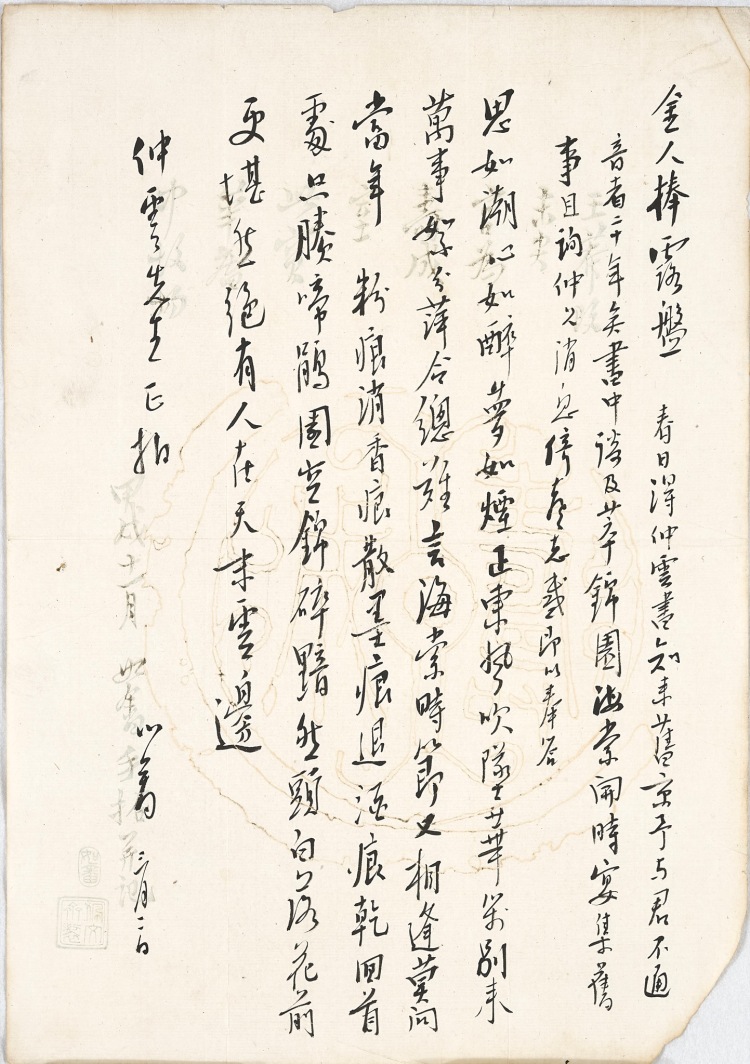 金人捧露盤　春日得仲雲書知來舊京予与君不通
音者二十年矣書中談及萃錦園海棠開時宴集舊
事且詢仲兄消息倚聲志感即以奉答
思如潮心如醉夢如煙正東風吹墜華箋別來
萬事如分萍合總難言海棠時節又相逢莫問
當年　粉痕消香痕散墨痕退酒痕乾回首
處只賸啼鵑園空錦碎黯然頭白落花前
更堪愁絕有人在天末雲邊
仲雲先生正拍
心畬 三月二日